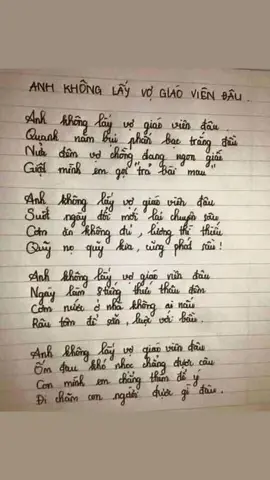 ANH KHÔNG LẤY VỢ GIÁO VIÊN ĐÂU.
Anh không lấy vợ giáo viên đâu
Quanh năm bụi phấn bạc trắng đầu
Nửa đêm vợ chồng đang ngon giấc
Giật mình em gọi "trả bài mau"
Anh không lấy vợ giáo viên đâu
Suốt ngày đổi mới lại chuyên sâu
Cơm ăn không đủ, lương thì thiếu
Quỹ nọ quỹ kia, cũng phát rầu!
Anh không lấy vợ giáo viên đâu
Ngày làm 8 tiếng thức thâu đêm
Cơm nước ở nhà không ai nấu
Rau tôm để sẵn, luộc với bầu.
Anh không lấy vợ giáo viên đâu
Ốm đau khó nhọc chẳng được câu
Con mình em chẳng thèm để ý
Đi chăm con người được gì đâu.